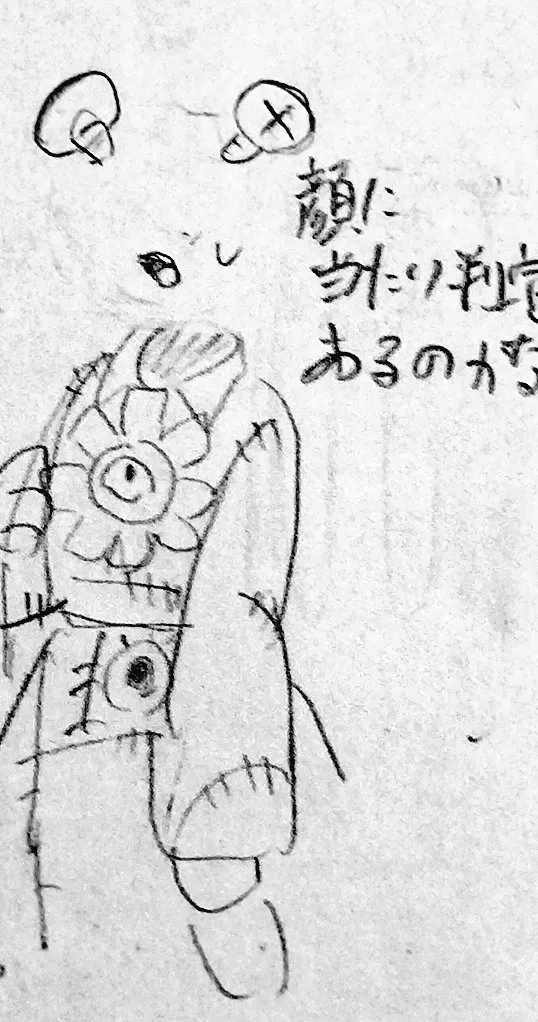 顔に
当たり判定
あるのかな